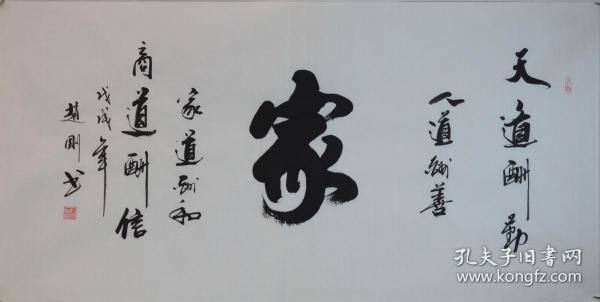 天道酬勤
人道酬善
家
家道酬和
商道酬信
戊戌年
赵刚书
孔夫子旧书网
www.kongfz.com